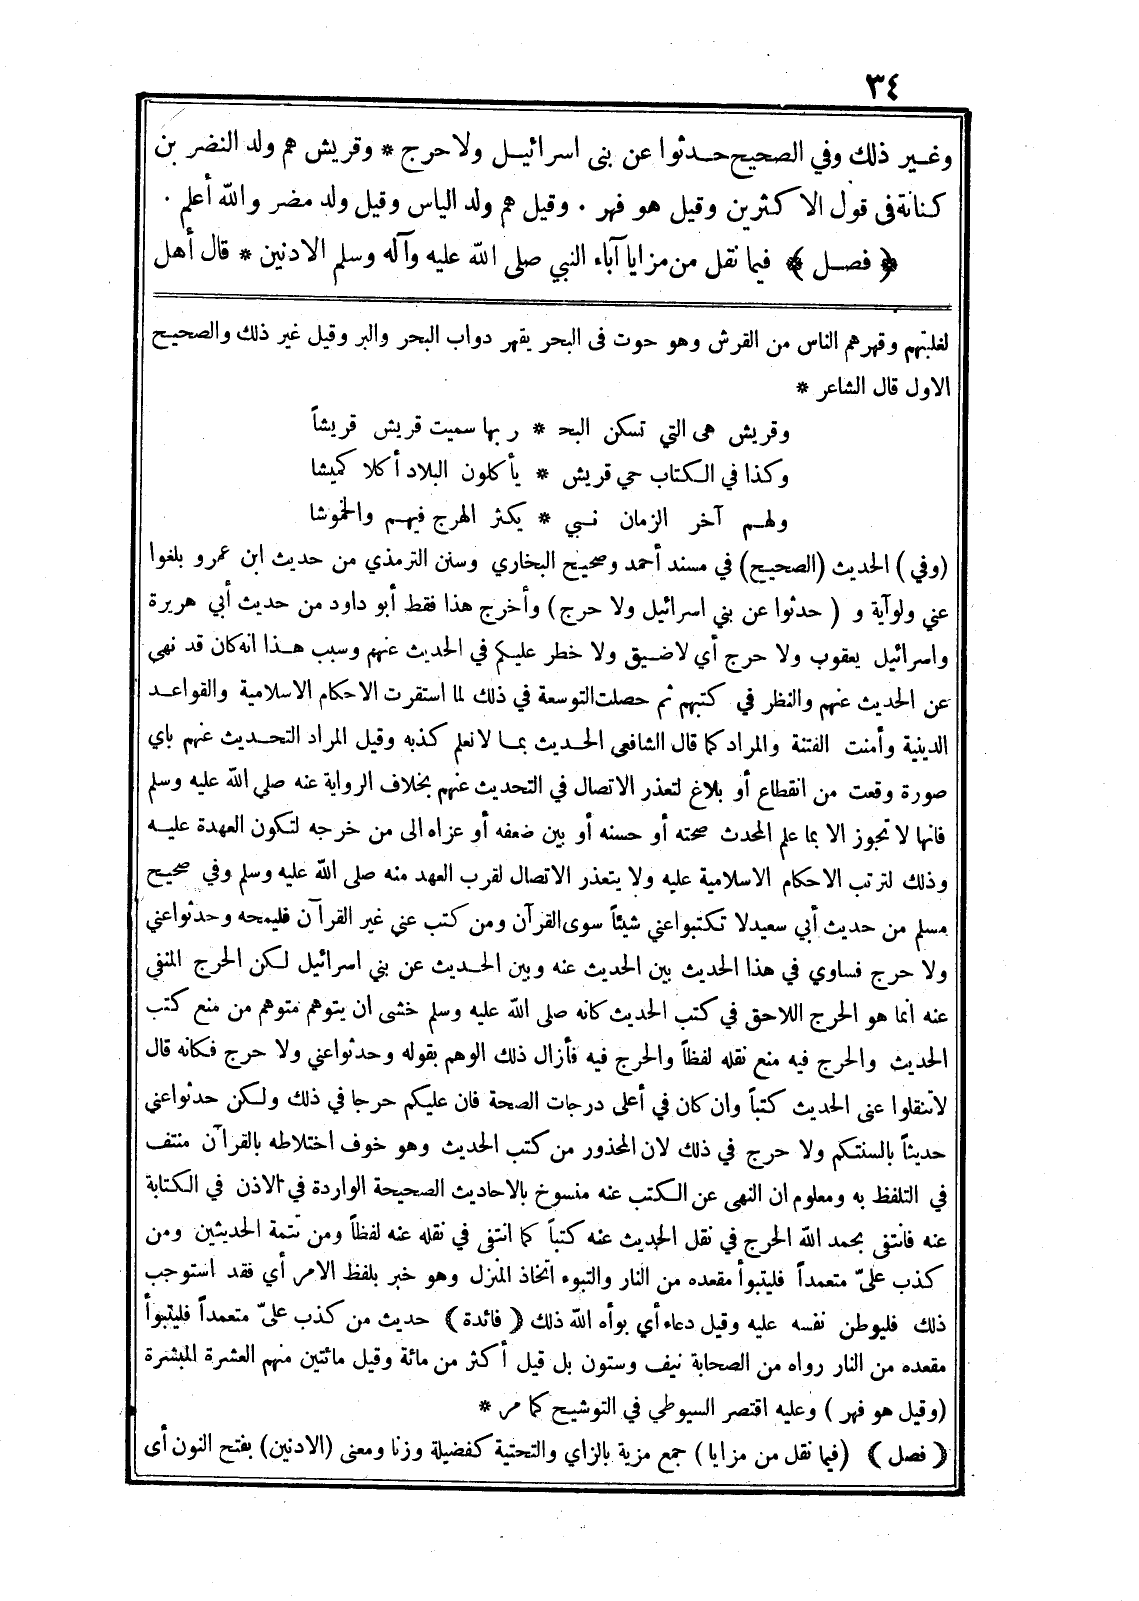 ٣٤
وغير ذلك وفي الصحيح حدثوا عن بنى اسرائيل ولا حرج * وقريش هم ولد النضر بن
كنانة فى قول الاكثرين وقيل هو فهر . وقيل هم ولد الياس وقيل ولد مضر والله أعلم .
﴿ فصل ﴾ فيما نقل من مزايا آباء النبي صلى الله عليه وآله وسلم الادنين * قال أهل
لغلبتهم وقهرهم الناس من القرش وهو حوت فى البحر يقهر دواب البحر والبر وقيل غير ذلك والصحيح
الاول قال الشاعر *
وقريش هى التي تسكن البحـ * ر بها سميت قريش قريشاً
وكذا في الكتاب حي قريش * يأكلون البلاد أكلا كميشا
ولهم آخر الزمان نبي * يكثر الهرج فيهم والخموشا
(وفي) الحديث (الصحيح) في مسند أحمد وصحيح البخاري وسنن الترمذي من حديث ابن عمرو بلغوا
عني ولو آية و ( حدثوا عن بني اسرائيل ولا حرج) وأخرج هذا فقط أبو داود من حديث أبي هريرة
واسرائيل يعقوب ولا حرج أي لا ضيق ولا خطر عليكم في الحديث عنهم وسبب هذا انه كان قد نهي
عن الحديث عنهم والنظر في كتبهم ثم حصلت التوسعة في ذلك لما استقرت الاحكام الاسلامية والقواعد
الدينية وأمنت الفتنة والمراد كما قال الشافعى الحديث بما لا نعلم كذبه وقيل المراد التحديث عنهم باي
صورة وقعت من انقطاع أو بلاغ لتعذر الاتصال في التحديث عنهم بخلاف الرواية عنه صلي الله عليه وسلم
فانها لا تجوز الا بما علم المحدث صحته أو حسنه أو بين ضعفه أو عزاه الى من خرجه لتكون العهدة عليه
وذلك لترتب الاحكام الاسلامية عليه ولا يتعذر الاتصال لقرب العهد منه صلى الله عليه وسلم وفي صحيح
مسلم من حديث أبي سعيد لا تكتبوا عني شيئاً سوى القرآن ومن كتب عني غير القرآن فليمحه وحدثوا عني
ولا حرج فساوي في هذا الحديث بين الحديث عنه وبين الحديث عن بني اسرائيل لكن الحرج المنفي
عنه انما هو الحرج اللاحق في كتب الحديث كانه صلى الله عليه وسلم خشى ان يتوهم متوهم من منع كتب
الحديث والحرج فيه منع نقله لفظاً والحرج فيه فأزال ذلك الوهم بقوله وحدثوا عني ولا حرج فكانه قال
لا تنقلوا عنى الحديث كتباً وان كان في أعلى درجات الصحة فان عليكم حرجا في ذلك ولكن حدثوا عني
حديثاً بالسنتكم ولا حرج في ذلك لان المحذور من كتب الحديث وهو خوف اختلاطه بالقرآن منتف
في التلفظ به ومعلوم ان النهى عن الكتب عنه منسوخ بالاحاديث الصحيحة الواردة في الاذن في الكتابة
عنه فانتفى بحمد الله الحرج في نقل الحديث عنه كتباً كما انتفى في نقله عنه لفظاً ومن تتمة الحديثين ومن
كذب عليّ متعمداً فليتبوأ مقعده من النار والتبوء اتخاذ المنزل وهو خبر بلفظ الامر أي فقد استوجب
ذلك فليوطن نفسه عليه وقيل دعاء أي بوأه الله ذلك ﴿ فائدة ﴾ حديث من كذب عليّ متعمداً فليتبوأ
مقعده من النار رواه من الصحابة نيف وستون بل قيل أكثر من مائة وقيل مائتين منهم العشرة المبشرة
(وقيل هو فهر ) وعليه اقتصر السيوطي في التوشيح كما مر *
﴿ فصل ﴾ (فيما نقل من مزايا) جمع مزية بالزاي والتحتية كفضيلة وزنا ومعنى (الادنين) بفتح النون أى